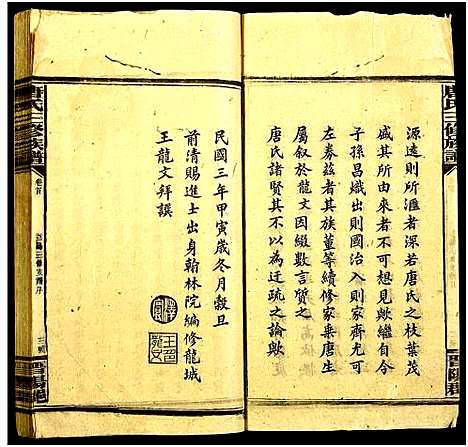 源遠則所滙者深若唐氏之枝葉茂
盛其所由來者不可想見歟繼自今
子孫昌熾出則國治入則家齊允可
左券茲者其族董等續修家乘唐生
屬叙於龍文因綴數言質之
唐氏諸賢其不以為迂疏之論歟
民國三年甲寅歲冬月穀旦
前清賜進士出身翰林院編修龍城
王龍文拜譔
唐氏三修族譜
卷首
晋陽堂
唐氏三修族譜